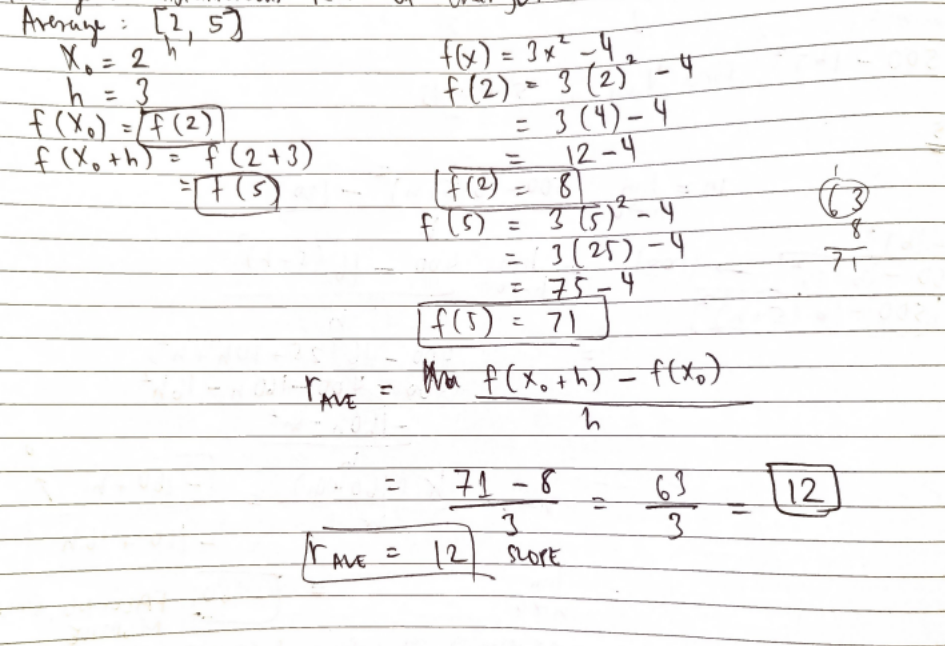 Average : [2, 5]
h
X₀ = 2
h = 3
f(X₀) = f(2)
f(X₀+h) = f(2+3)
= f(5)
f(x) = 3x² - 4
f(2) = 3(2)² - 4
= 3(4) - 4
= 12 - 4
f(2) = 8
f(5) = 3(5)² - 4
= 3(25) - 4
= 75 - 4
f(5) = 71
1
63
8
71
r AVE = f(X₀+h) - f(X₀) / h
= 71 - 8 / 3 = 63 / 3 = 12
r AVE = 12 SLOPE